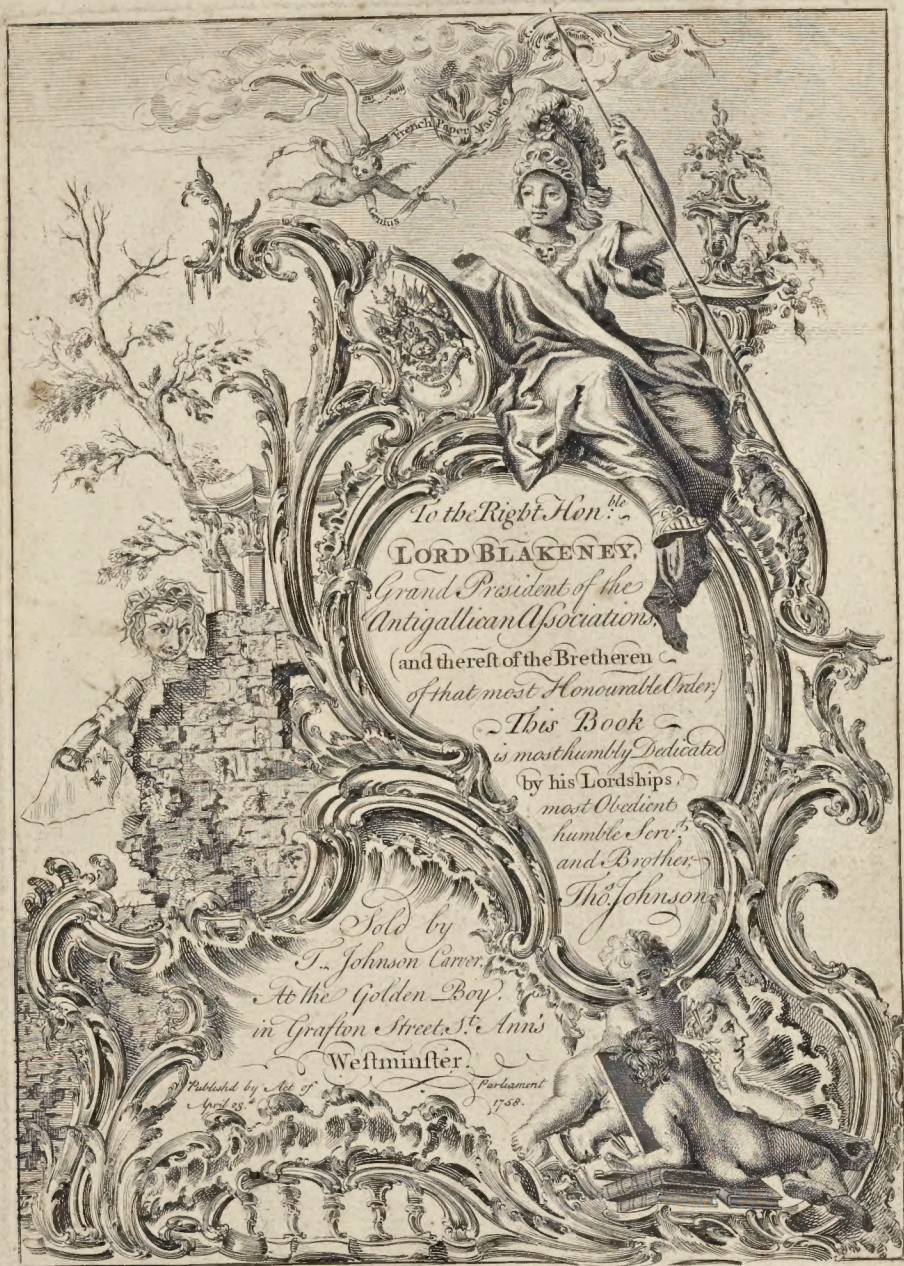 French Paper Machee
Genius
To the Right Hon.ble
LORD BLAKENEY,
Grand President of the
Antigallican Aſsociations,
(and the reſt of the Bretheren
of that most Honourable Order;)
This Book
is most humbly Dedicated
by his Lordships,
most Obedient
humble Serv.t,
and Brother,
Tho.s Johnson
Sold by
T. Johnson Carver,
At the Golden Boy,
in Grafton Street, S.t Ann's
Weſtminſter.
Publishd by Act of Parliament
April 1758.